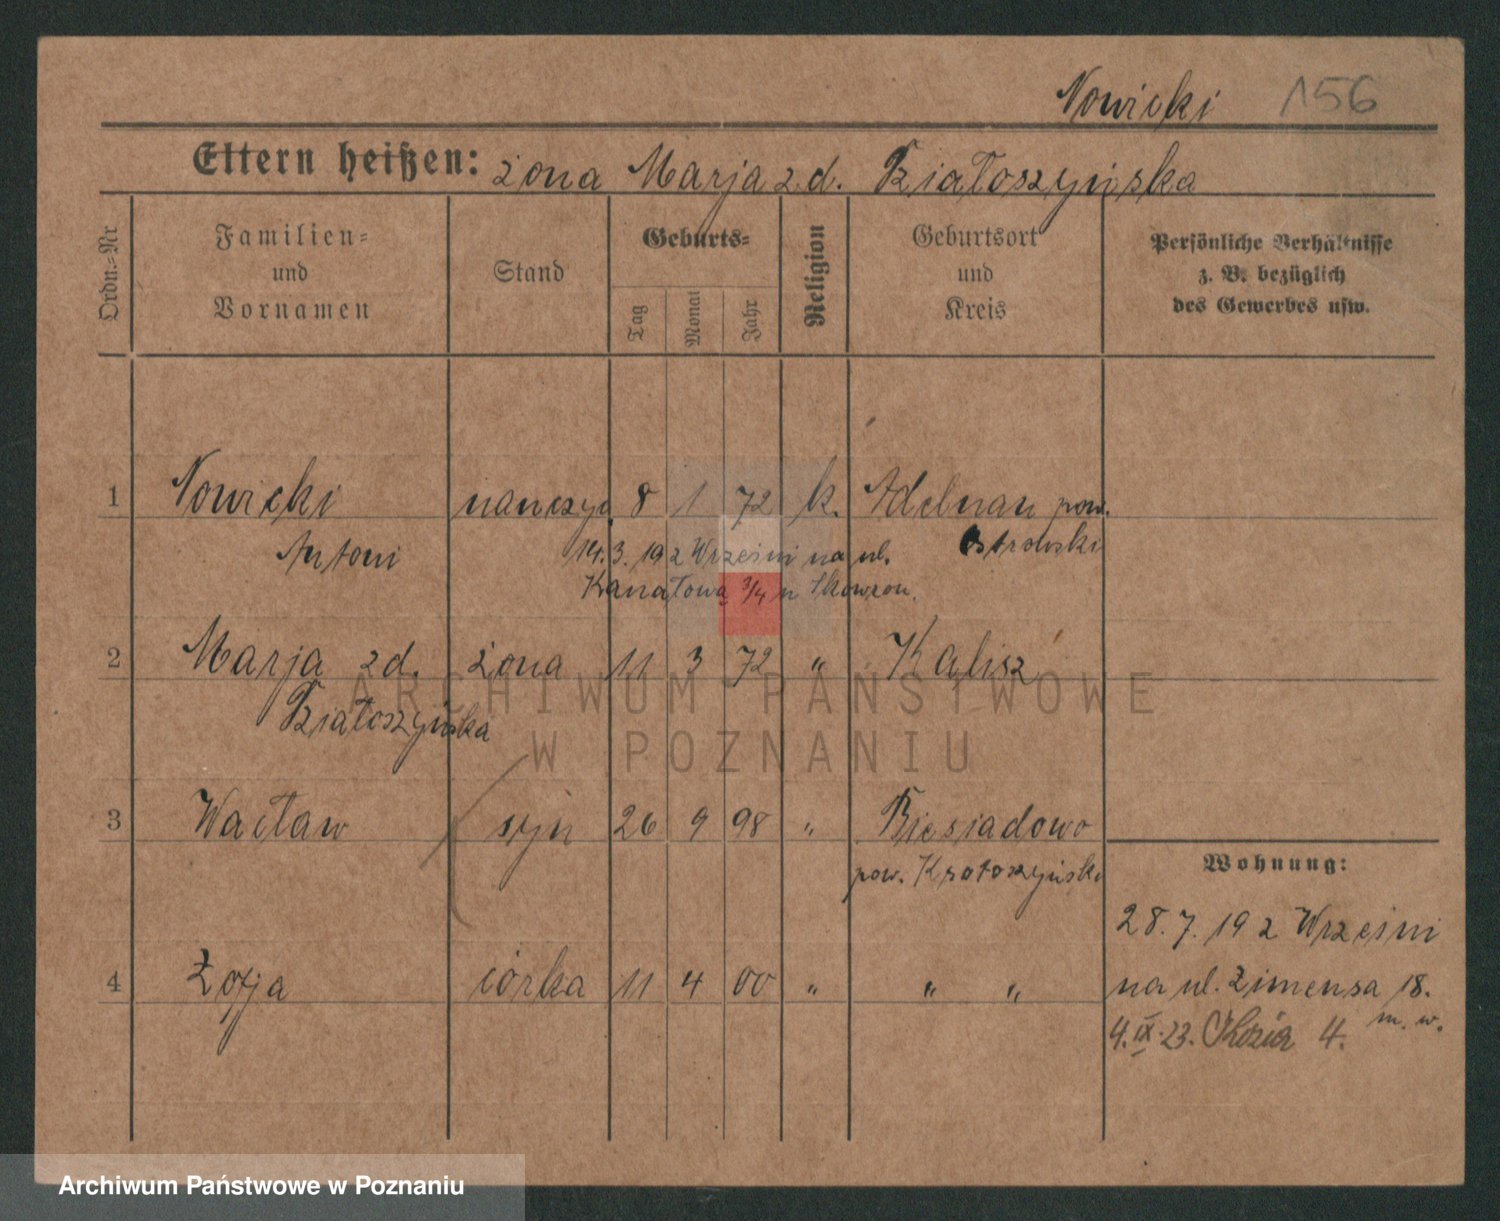 Nowicki 156
Eltern heißen: żona Marja z d. Białoszyńska
Ordn.-Nr
Familien-
und
Vornamen
Stand
Geburts-
Tag
Monat
Jahr
Religion
Geburtsort
und
Kreis
Persönliche Verhältnisse
z. B. bezüglich
des Gewerbes usw.
1 Nowicki nauczyc. 8 1 72 k. Adelnau pow.
Antoni 14.3.19 z Wrześni na ul. Ostrowski
Kanałową 3/4 u Skowron.
2 Marja z d. żona 11 3 72 " Kalisz
Białoszyńska
3 Wacław syn 26 9 98 " Biesiadowo
pow. Krotoszyński
Wohnung:
28.7.19 z Wrześni
4 Zofja córka 11 4 00 " " "
na ul. Zimensa 18.
m. w.
4.IX.23. 4.
ARCHIWUM PAŃSTWOWE
W POZNANIU
Archiwum Państwowe w Poznaniu